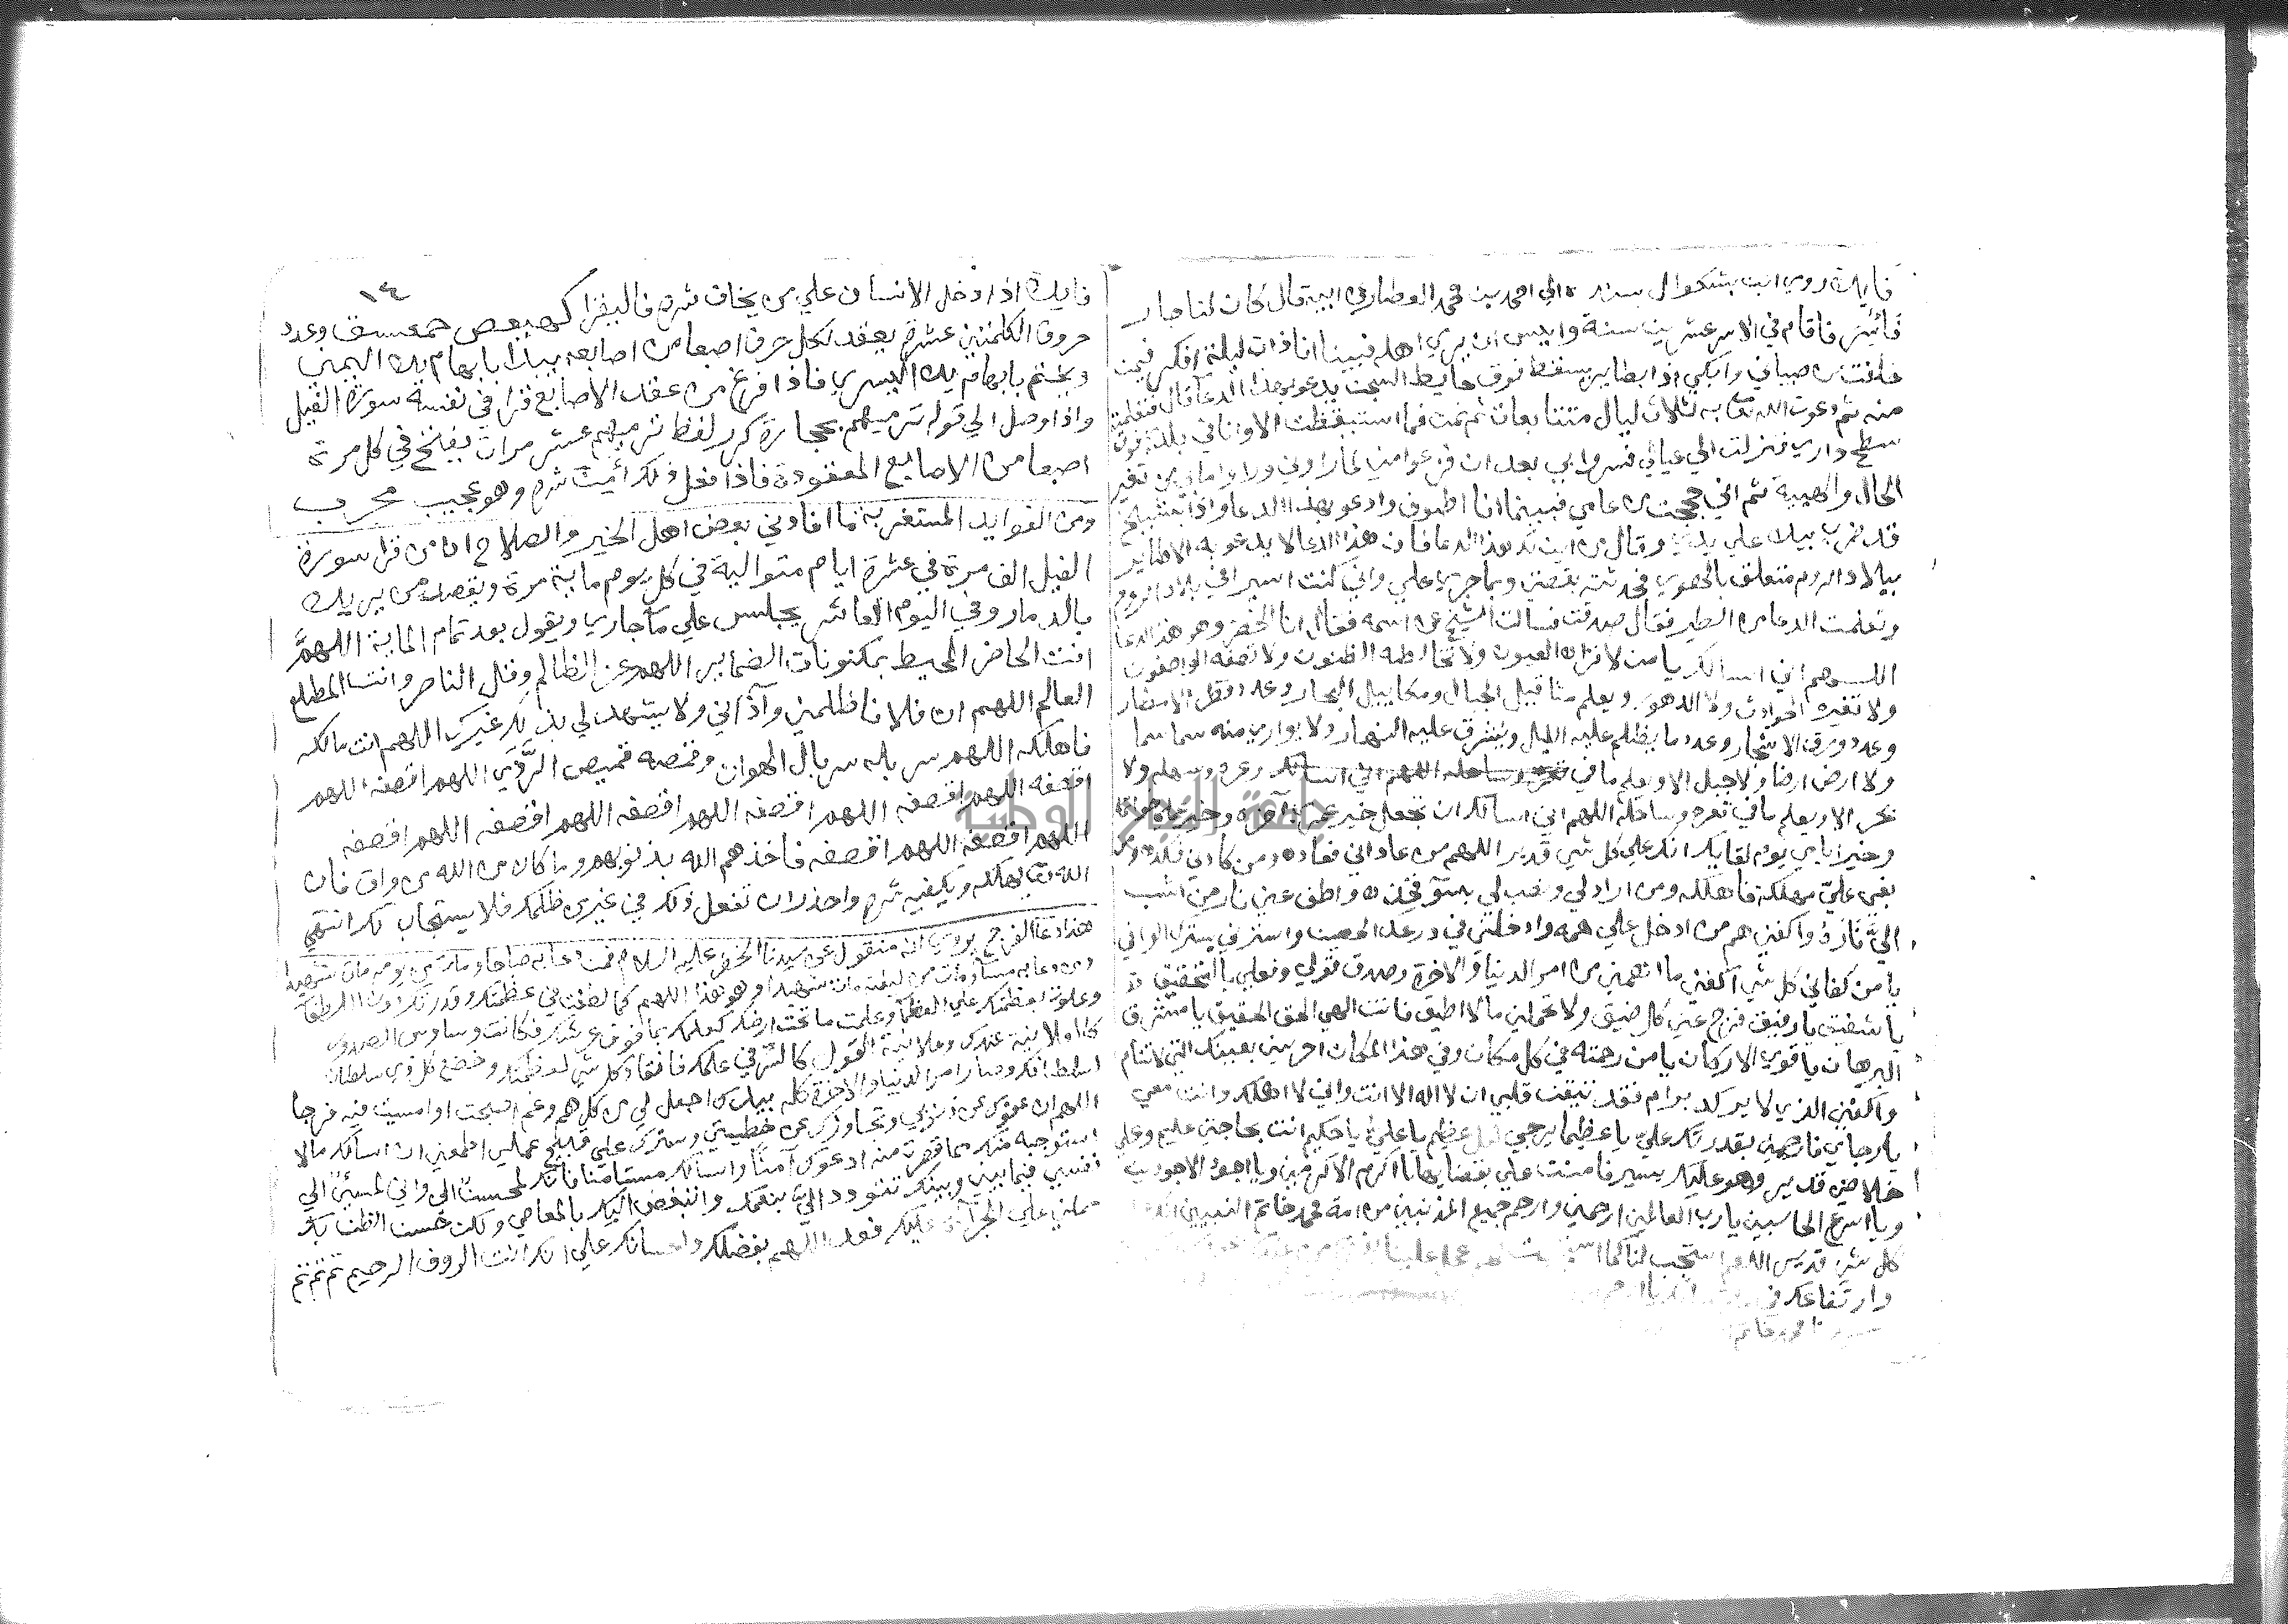 فايدة روي ابن بشكوال بسنده الي احمد بن محمد العطار عن ابيه قال كان لنا جار
فاسر فاقام في الاسر عشرين سنة وايس ان يري اهله فبينا انا ذات ليلة افكر فيمن
خلفت من صبياني وابكي اذا بطاير سقط فوق حايط السجن يدعو بهذا الدعا قال فتعلمته
منه ثم دعوت الله به ثلاث ليال متتابعات ثم نمت فما استيقظت الا وانا في بلدي فوق
سطح داري فنزلت الي عيالي فسروا بي بعد ان فزعوا مني لما راوني وراوا ما بي من تغير
الحال والهيبة ثم اني حججت من عامي فبينما انا اطوف وادعو بهذا الدعا واذا بشيخ
قد ضرب بيده علي يدي وقال من اين لك هذا الدعا فان هذا الدعا لا يدعو به الا طاير
ببلاد الروم متعلق بالهوي فحدثته بقصتي وبما جري علي واني كنت اسيرا في بلاد الروم
وتعلمت الدعا من الطير فقال صدقت فسالت الشيخ عن اسمه فقال انا الخضر وهو هذا الدعا
اللهم اني اسالك يا من لا تراه العيون ولا تخالطه الظنون ولا تصفه الواصفون
ولا تغيره الحوادث ولا الدهور ويعلم مثاقيل الجبال ومكاييل البحار وعدد قطر الامطار
وعدد ورق الاشجار وعدد ما يظلم عليه الليل ويشرق عليه النهار ولا يواري منه سما سما
ولا ارض ارضا ولا جبل الا ويعلم ما في وعره وسهله ولا
بحر الا ويعلم ما في قعره وساحله اللهم اني اسالك ان تجعل خير عمري آخره وخير عملي خواتمه
وخير ايامي يوم لقايك انك علي كل شي قدير اللهم من عاداني فعاده ومن كادني فكده ومن
بغي علي بهلكة فاهلكه ومن ارادني بسوء فخذه واطف عني نار من اشب
الي ناره واكفني هم من ادخل علي همه وادخلني في درعك الحصين واسترني بسترك الواقي
يا من كفاني كل شي اكفني ما اهمني من امر الدنيا والاخرة وصدق قولي وفعلي بالتحقيق
يا شفيق يا رفيق فرج عني كل ضيق ولا تحملني ما لا اطيق فانت الهي الحق الحقيق يا مشرق
البرهان يا قوي الاركان يا من رحمته في كل مكان وفي هذا المكان احرسني بعينك التي لا تنام
واكنفني الذي لا يرام فقد تيقن قلبي ان لا اله الا انت واني لا اهلك وانت معي
يا رجاي فارحمني بقدرتك علي يا عظيما يرجي لكل عظيم يا عليم يا حكيم انت بحاجتي عليم وعلي
خلاصي قدير وهو عليك يسير فامنن علي بقضايها يا اكرم الاكرمين ويا اجود الاجودين
ويا اسرع الحاسبين يا رب العالمين ارحمني وارحم جميع المذنبين من امة محمد خاتم النبيين انك علي
كل شي قدير اللهم استجب لنا كما
١٤
فايدة اذا دخل الانسان علي من يخاف شره فاليقرا كهيعص حمعسق وعدد
حروف الكلمتين عشرة يعقد لكل حرف اصبعا من اصابعه يبدا بابهام يده اليمني
ويختم بابهام يده اليسري فاذا فرغ من عقد الاصابع قرا في نفسه سورة الفيل
واذا وصل الي قوله ترميهم بحجارة كرر لفظ ترميهم عشر مرات يفتح في كل مرة
اصبعا من الاصابع المعقودة فاذا فعل ذلك امن شره وهو عجيب مجرب
ومن الفوايد المستغربة ما افادني بعض اهل الخير والصلاح ان من قرا سورة
الفيل الف مرة في عشرة ايام متوالية في كل يوم ماية مرة ويقصد من يريد
بالدمار وفي اليوم العاشر يجلس علي ما جاري ويقول بعد تمام الماية اللهم
انت الحاضر المحيط بمكنونات الضماير اللهم عز الظالم وقل الناصر وانت المطلع
العالم اللهم ان فلانا ظلمني وآذاني ولا يشهد لي بذلك غيرك اللهم انت مالكه
فاهلكه اللهم سربله سربال الهوان وقمصه قميص الردي اللهم اقصفه اللهم
اقصفه اللهم اقصفه اللهم اقصفه اللهم اقصفه اللهم اقصفه اللهم اقصفه
اللهم اقصفه اللهم اقصفه فاخذهم الله بذنوبهم وما كان من الله من واق فان
الله يهلكه ويكفيه شره واحذر ان تفعل ذلك في غير من ظلمك فلا يستجاب لك انتهي
هذا دعا الفرج يروي انه منقول عن سيدنا الخضر عليه السلام فمن دعا به صباحا ومات من يومه مات شهيدا
ومن دعا به مسا ومات من ليلته مات شهيدا وهو هذا اللهم كما لطفت في عظمتك وقدرتك دون اللطفا
وعلوت بعظمتك علي العظما وعلمت ما تحت ارضك كعلمك بما فوق عرشك فكانت وساوس الصدور
كالعلانية عندك وعلانية القول كالسر في علمك فانقاد كل شي لعظمتك وخضع كل ذي سلطان
لسلطانك وصار امر الدنيا والاخرة كله بيدك اجعل لي من كل هم وغم اصبحت او امسيت فيه فرجا
اللهم ان عفوك عن ذنوبي وتجاوزك عن خطيتي وسترك علي قبيح عملي اطمعني ان اسالك ما لا
استوجبه منك مما قصرت منه ادعوك آمنا واسالك مستامنا فانك المحسن الي واني المسيئ الي
نفسي فيما بيني وبينك تتودد الي بنعمك واتبغض اليك بالمعاصي ولكن حسن الظن بك
حملني علي الجراة عليك فعد اللهم بفضلك واحسانك علي انك انت الروف الرحيم تم تم تم